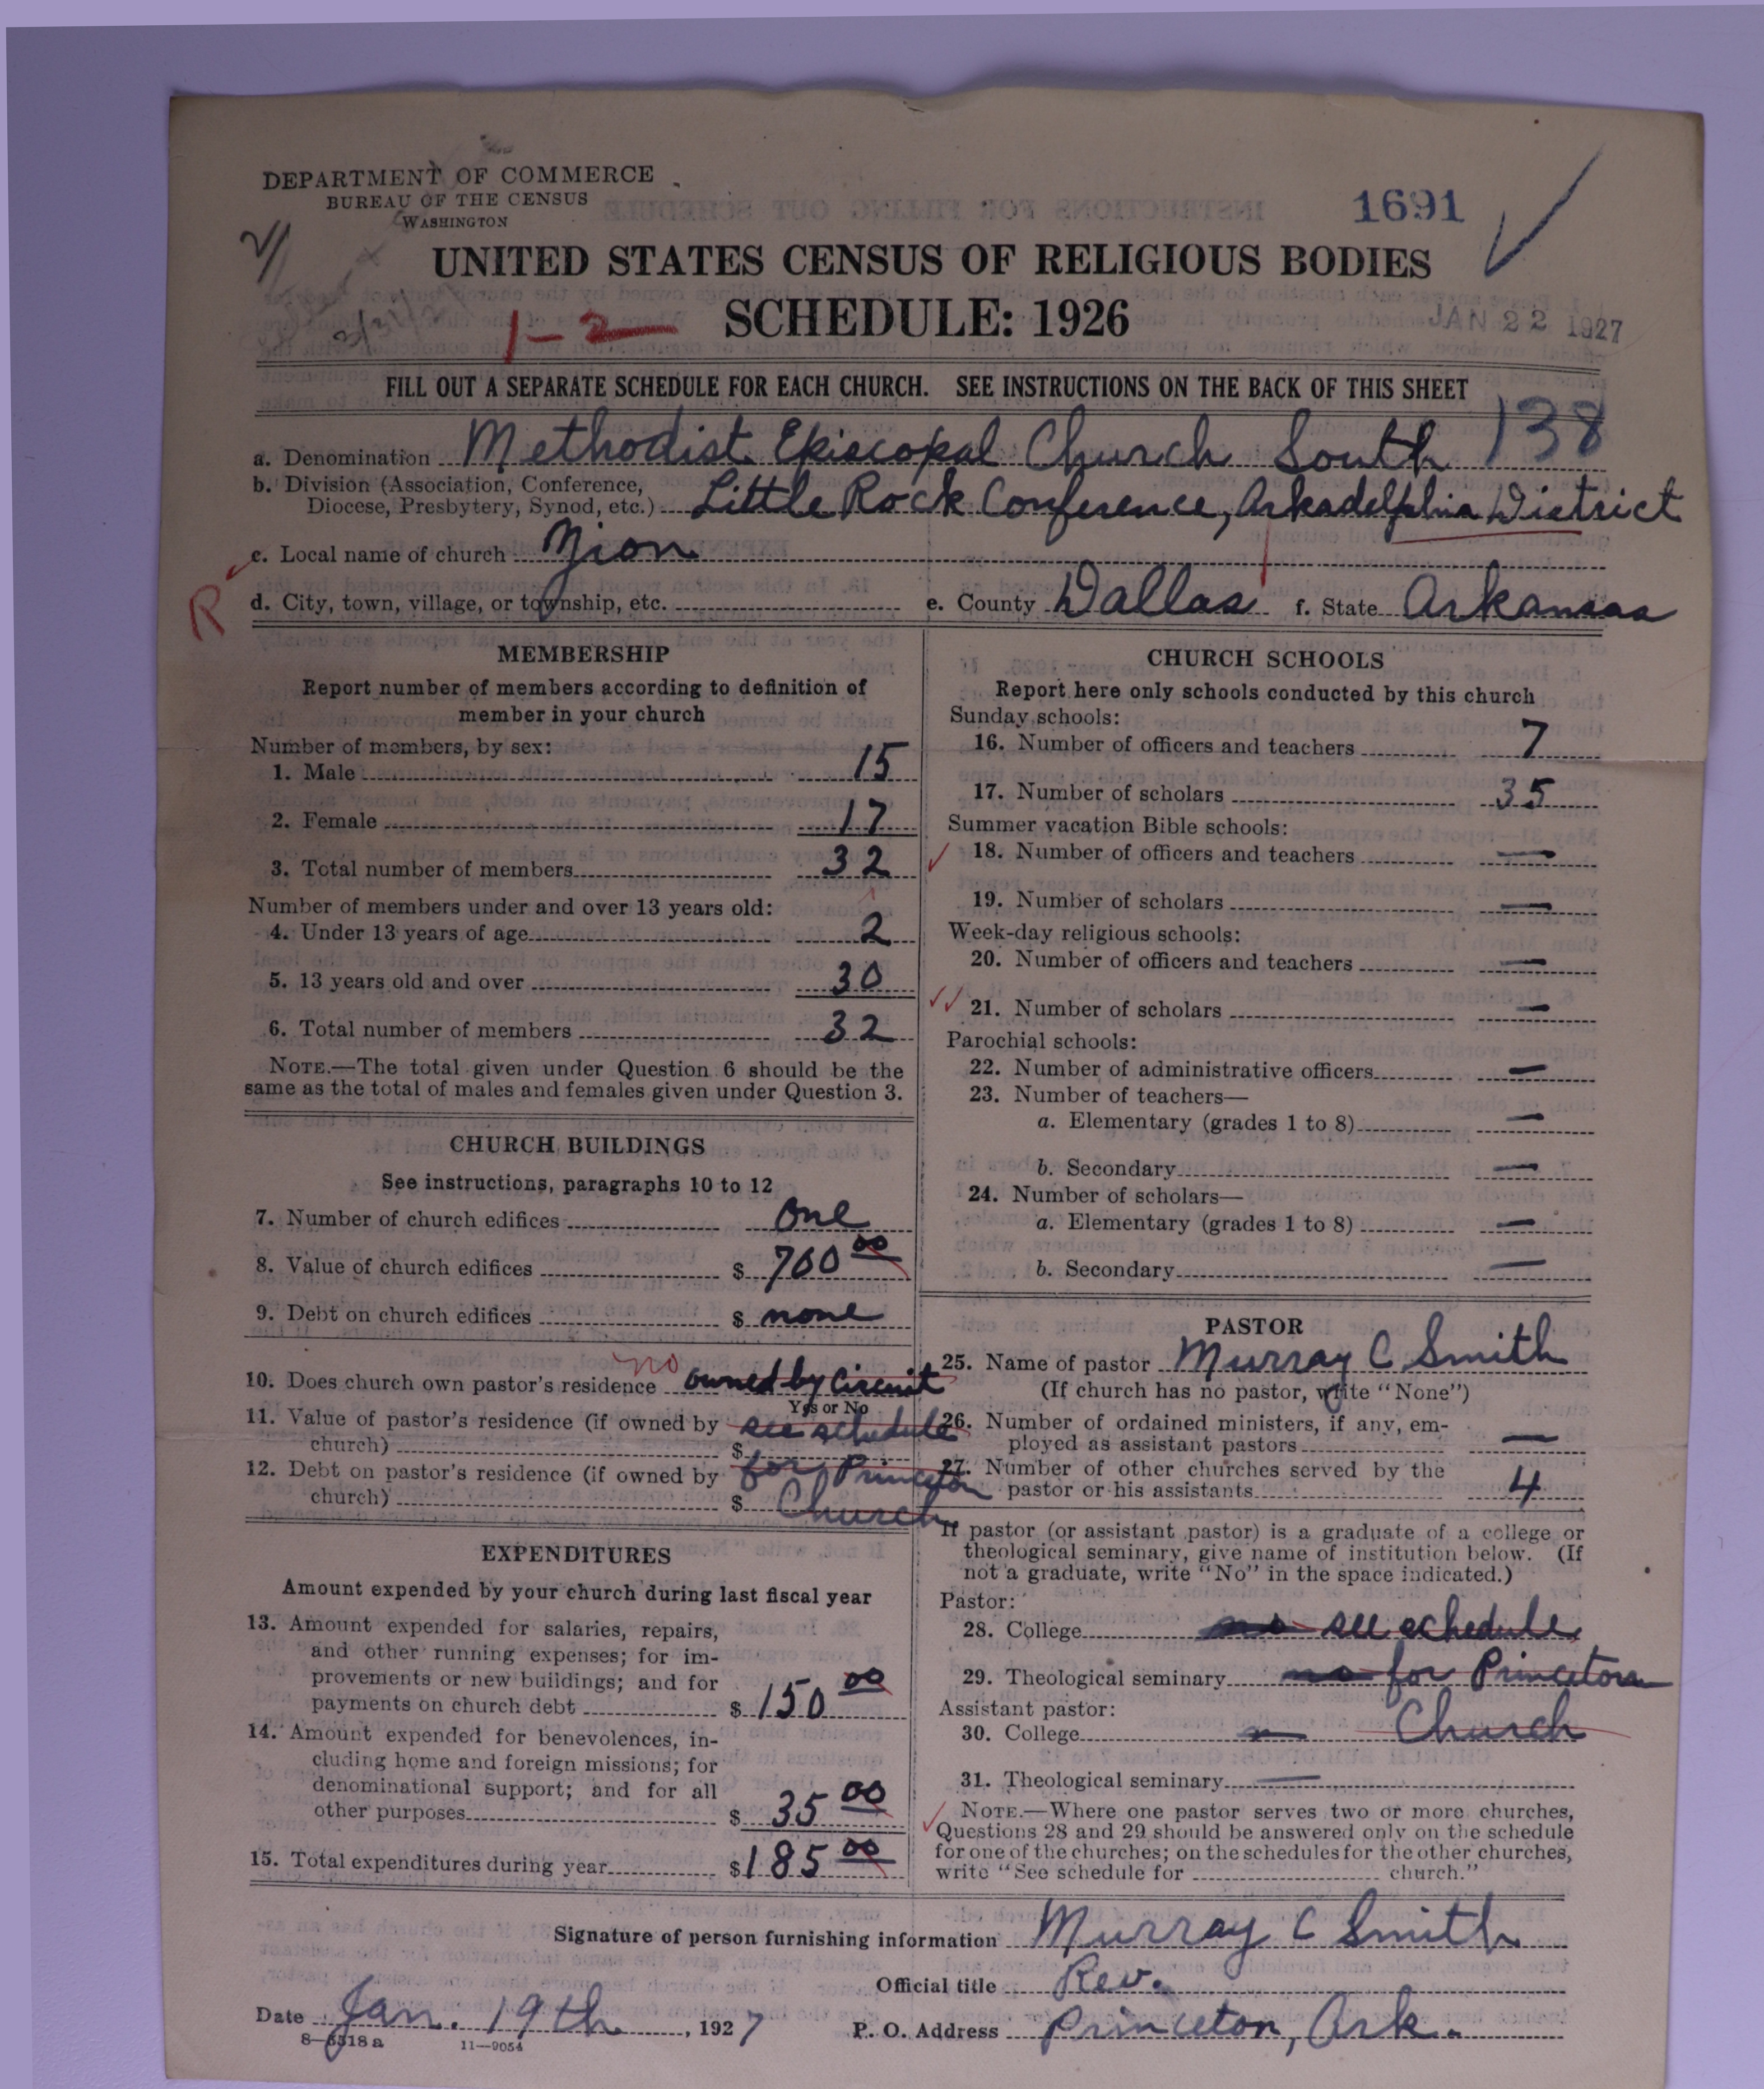 DEPARTMENT OF COMMERCE
BUREAU OF THE CENSUS
WASHINGTON
1691
UNITED STATES CENSUS OF RELIGIOUS BODIES
SCHEDULE: 1926
1-2
JAN 22 1927
FILL OUT A SEPARATE SCHEDULE FOR EACH CHURCH. SEE INSTRUCTIONS ON THE BACK OF THIS SHEET
138
a. Denomination Methodist Episcopal Church South
b. Division (Association, Conference,
Diocese, Presbytery, Synod, etc.) Little Rock Conference, Arkadelphia District
c. Local name of church Zion
R
d. City, town, village, or township, etc. e. County Dallas f. State Arkansas
MEMBERSHIP
Report number of members according to definition of
member in your church
Number of members, by sex:
1. Male 15
2. Female 17
3. Total number of members 32
Number of members under and over 13 years old:
4. Under 13 years of age 2
5. 13 years old and over 30
6. Total number of members 32
NOTE.—The total given under Question 6 should be the
same as the total of males and females given under Question 3.
CHURCH BUILDINGS
See instructions, paragraphs 10 to 12
7. Number of church edifices one
8. Value of church edifices $ 700 00
9. Debt on church edifices $ none
no
10. Does church own pastor's residence owned by Circuit
Yes or No
11. Value of pastor's residence (if owned by see schedule
church) $
12. Debt on pastor's residence (if owned by for Princeton
church) $ Church
EXPENDITURES
Amount expended by your church during last fiscal year
13. Amount expended for salaries, repairs,
and other running expenses; for im-
provements or new buildings; and for
payments on church debt $ 150 00
14. Amount expended for benevolences, in-
cluding home and foreign missions; for
denominational support; and for all
other purposes $ 35 00
15. Total expenditures during year $ 185 00
CHURCH SCHOOLS
Report here only schools conducted by this church
Sunday schools:
16. Number of officers and teachers 7
17. Number of scholars 35
Summer vacation Bible schools:
18. Number of officers and teachers —
19. Number of scholars —
Week-day religious schools:
20. Number of officers and teachers —
21. Number of scholars —
Parochial schools:
22. Number of administrative officers —
23. Number of teachers—
a. Elementary (grades 1 to 8) —
b. Secondary —
24. Number of scholars—
a. Elementary (grades 1 to 8) —
b. Secondary —
PASTOR
25. Name of pastor Murray C Smith
(If church has no pastor, write "None")
26. Number of ordained ministers, if any, em-
ployed as assistant pastors —
27. Number of other churches served by the
pastor or his assistants 4
If pastor (or assistant pastor) is a graduate of a college or
theological seminary, give name of institution below. (If
not a graduate, write "No" in the space indicated.)
Pastor:
28. College no see schedule
29. Theological seminary no for Princeton
Assistant pastor:
30. College — Church
31. Theological seminary —
NOTE.—Where one pastor serves two or more churches,
Questions 28 and 29 should be answered only on the schedule
for one of the churches; on the schedules for the other churches,
write "See schedule for church."
Signature of person furnishing information Murray C Smith
Official title Rev.
Date Jan. 19th, 1927 P. O. Address Princeton, Ark.
8-5318a 11-9054